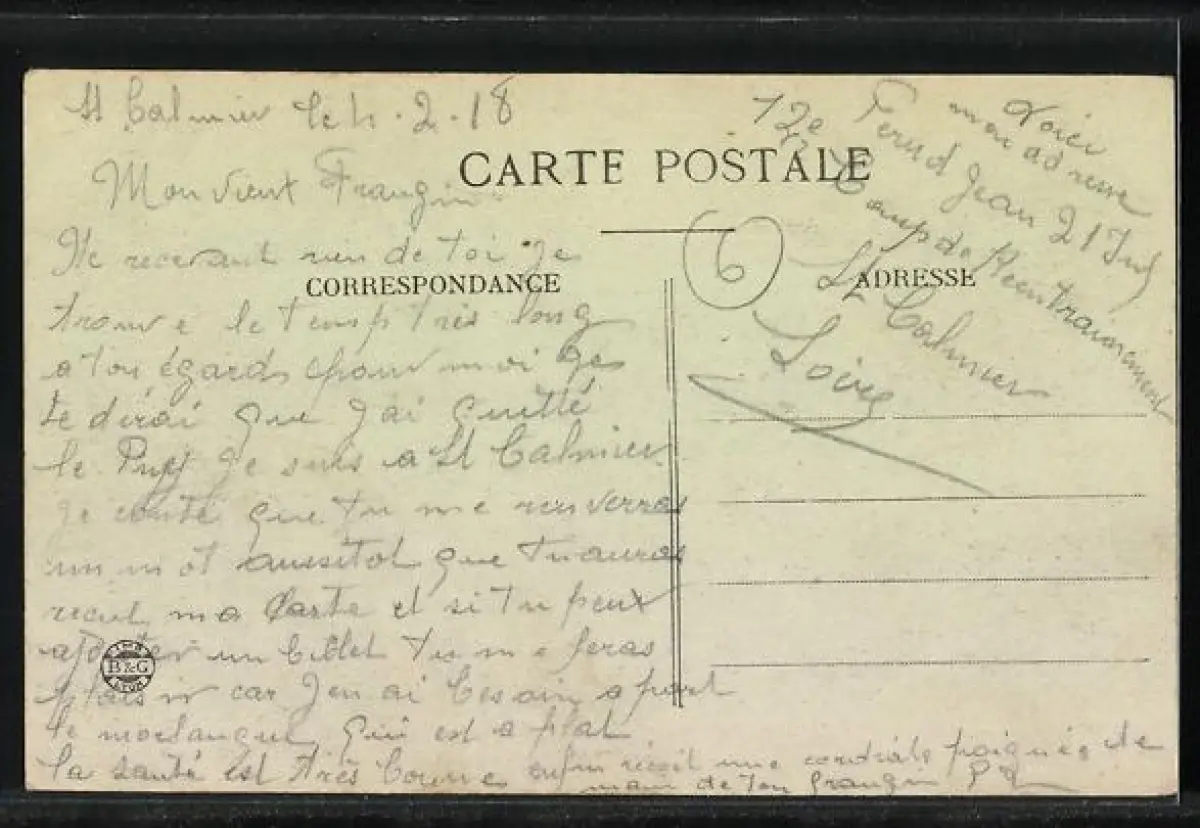 St Galmier le 4.2.18
Mon vieux Frangin
CARTE POSTALE
CORRESPONDANCE
Ne recevant rien de toi je
trouve le temp très long
a ton égards pour moi je
te dirai que j'ai quitté
le Puy je suis a St Galmier
je conte que tu me renverras
un mot aussitot que tu auras
recut ma Carte et si tu peux
ajouter un billet tu me feras
plaisir car j'en ai besoin a part
le morlanque qui est a plat
la santé est très bonne enfin recoit une cordiale poignée de
main de ton frangin
B&G
LYON
6
ADRESSE
Voici
mon adresse
Jean 21
12e Comp de Reentrainement
St Galmier
Loire